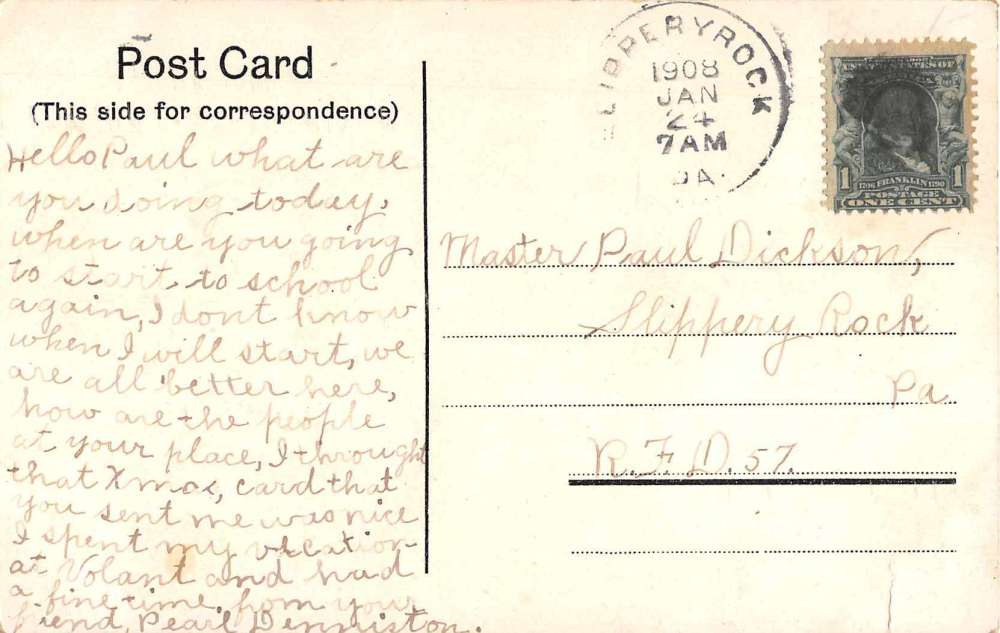 Post Card
(This side for correspondence)
Hello Paul what are
you doing today,
when are you going
to start to school
again, I dont know
when I will start, we
are all better here,
how are the people
at your place, I throught
that Xmas, card that
you sent me was nice
I spent my vacation
at Volant and had
a fine time, from your
friend, Pearl Denniston.
SLIPPERYROCK
1908
JAN
24
7AM
PA.
1 1706 FRANKLIN 1790 1
POSTAGE
ONE CENT
Master Paul Dickson,
Slippery Rock
Pa
R.F.D. 57.